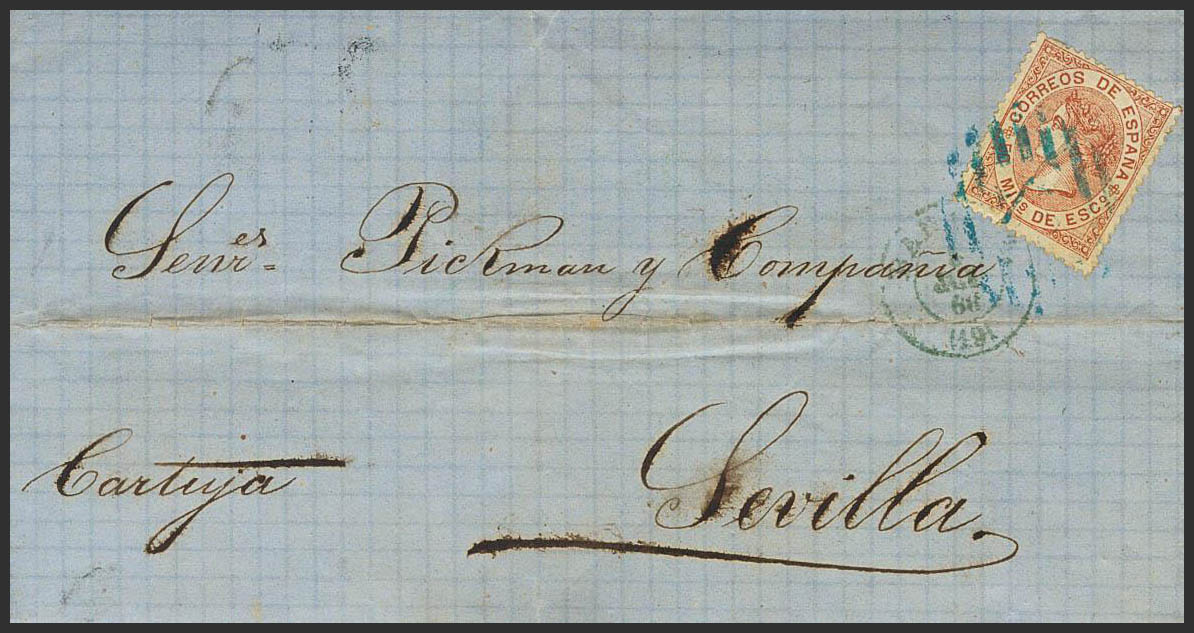 CORREOS DE ESPAÑA
MILS DE ESCO
Senres Pickman y Compañia
JUL
(19)
Cartuja
Sevilla.